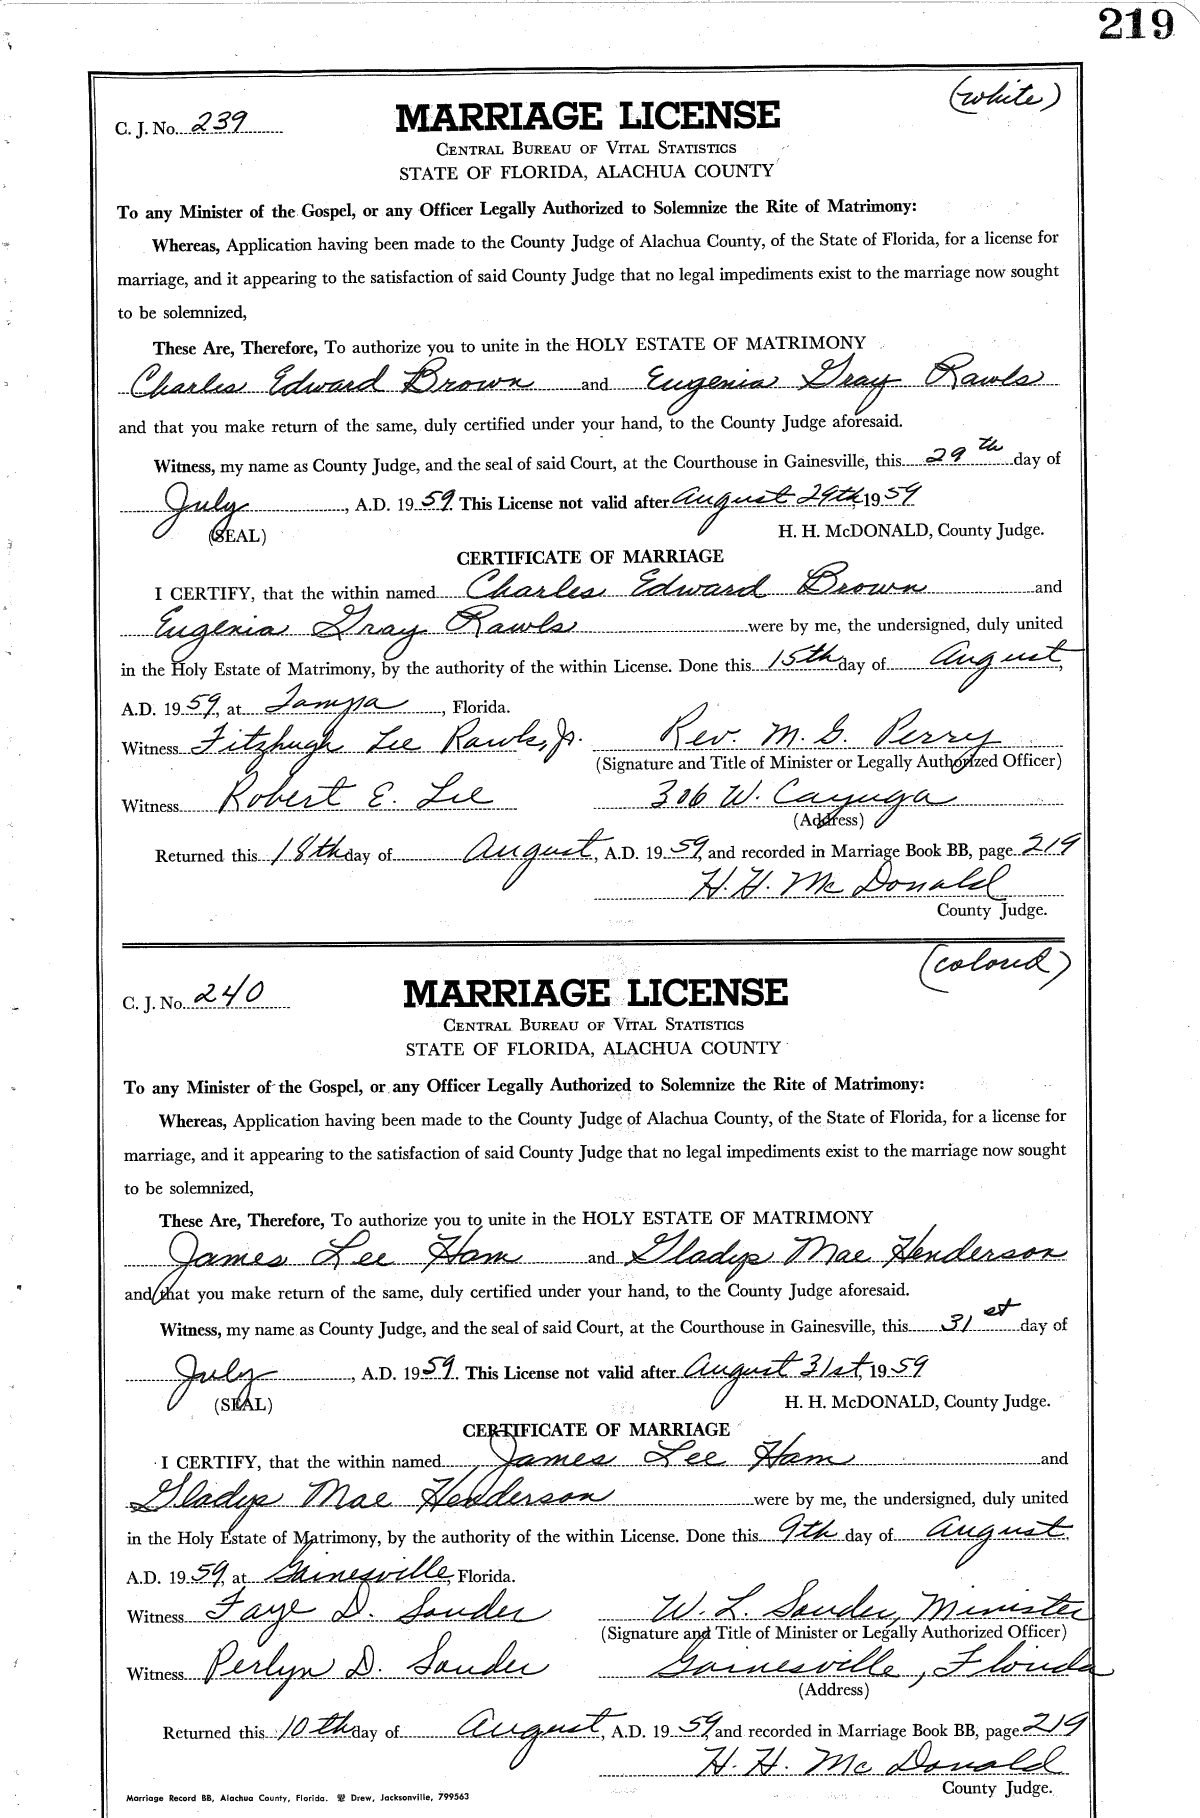 219
(white)
C. J. No. 239
MARRIAGE LICENSE
CENTRAL BUREAU OF VITAL STATISTICS
STATE OF FLORIDA, ALACHUA COUNTY
To any Minister of the Gospel, or any Officer Legally Authorized to Solemnize the Rite of Matrimony:
Whereas, Application having been made to the County Judge of Alachua County, of the State of Florida, for a license for
marriage, and it appearing to the satisfaction of said County Judge that no legal impediments exist to the marriage now sought
to be solemnized,
These Are, Therefore, To authorize you to unite in the HOLY ESTATE OF MATRIMONY
Charles Edward Brown and Eugenia Gray Rawls
and that you make return of the same, duly certified under your hand, to the County Judge aforesaid.
Witness, my name as County Judge, and the seal of said Court, at the Courthouse in Gainesville, this 29th day of
July, A.D. 1959. This License not valid after August 29th, 1959
(SEAL) H. H. McDONALD, County Judge.
CERTIFICATE OF MARRIAGE
I CERTIFY, that the within named Charles Edward Brown and
Eugenia Gray Rawls were by me, the undersigned, duly united
in the Holy Estate of Matrimony, by the authority of the within License. Done this 15th day of August,
A.D. 1959, at Tampa, Florida.
Witness Fitzhugh Lee Rawls, Jr. Rev. M. G. Perry
(Signature and Title of Minister or Legally Authorized Officer)
Witness Robert E. Lee 306 W. Cayuga
(Address)
Returned this 18th day of August, A.D. 1959, and recorded in Marriage Book BB, page 219
H. H. McDonald
County Judge.
(colored)
C. J. No. 240
MARRIAGE LICENSE
CENTRAL BUREAU OF VITAL STATISTICS
STATE OF FLORIDA, ALACHUA COUNTY
To any Minister of the Gospel, or any Officer Legally Authorized to Solemnize the Rite of Matrimony:
Whereas, Application having been made to the County Judge of Alachua County, of the State of Florida, for a license for
marriage, and it appearing to the satisfaction of said County Judge that no legal impediments exist to the marriage now sought
to be solemnized,
These Are, Therefore, To authorize you to unite in the HOLY ESTATE OF MATRIMONY
James Lee Ham and Gladys Mae Henderson
and that you make return of the same, duly certified under your hand, to the County Judge aforesaid.
Witness, my name as County Judge, and the seal of said Court, at the Courthouse in Gainesville, this 31st day of
July, A.D. 1959. This License not valid after August 31st, 1959
(SEAL) H. H. McDONALD, County Judge.
CERTIFICATE OF MARRIAGE
I CERTIFY, that the within named James Lee Ham and
Gladys Mae Henderson were by me, the undersigned, duly united
in the Holy Estate of Matrimony, by the authority of the within License. Done this 9th day of August,
A.D. 1959, at Gainesville, Florida.
Witness Faye D. Souder W. L. Souder, Minister
(Signature and Title of Minister or Legally Authorized Officer)
Witness Perlyn D. Souder Gainesville, Florida
(Address)
Returned this 10th day of August, A.D. 1959, and recorded in Marriage Book BB, page 219
H. H. McDonald
County Judge.
Marriage Record BB, Alachua County, Florida. Drew, Jacksonville, 799563